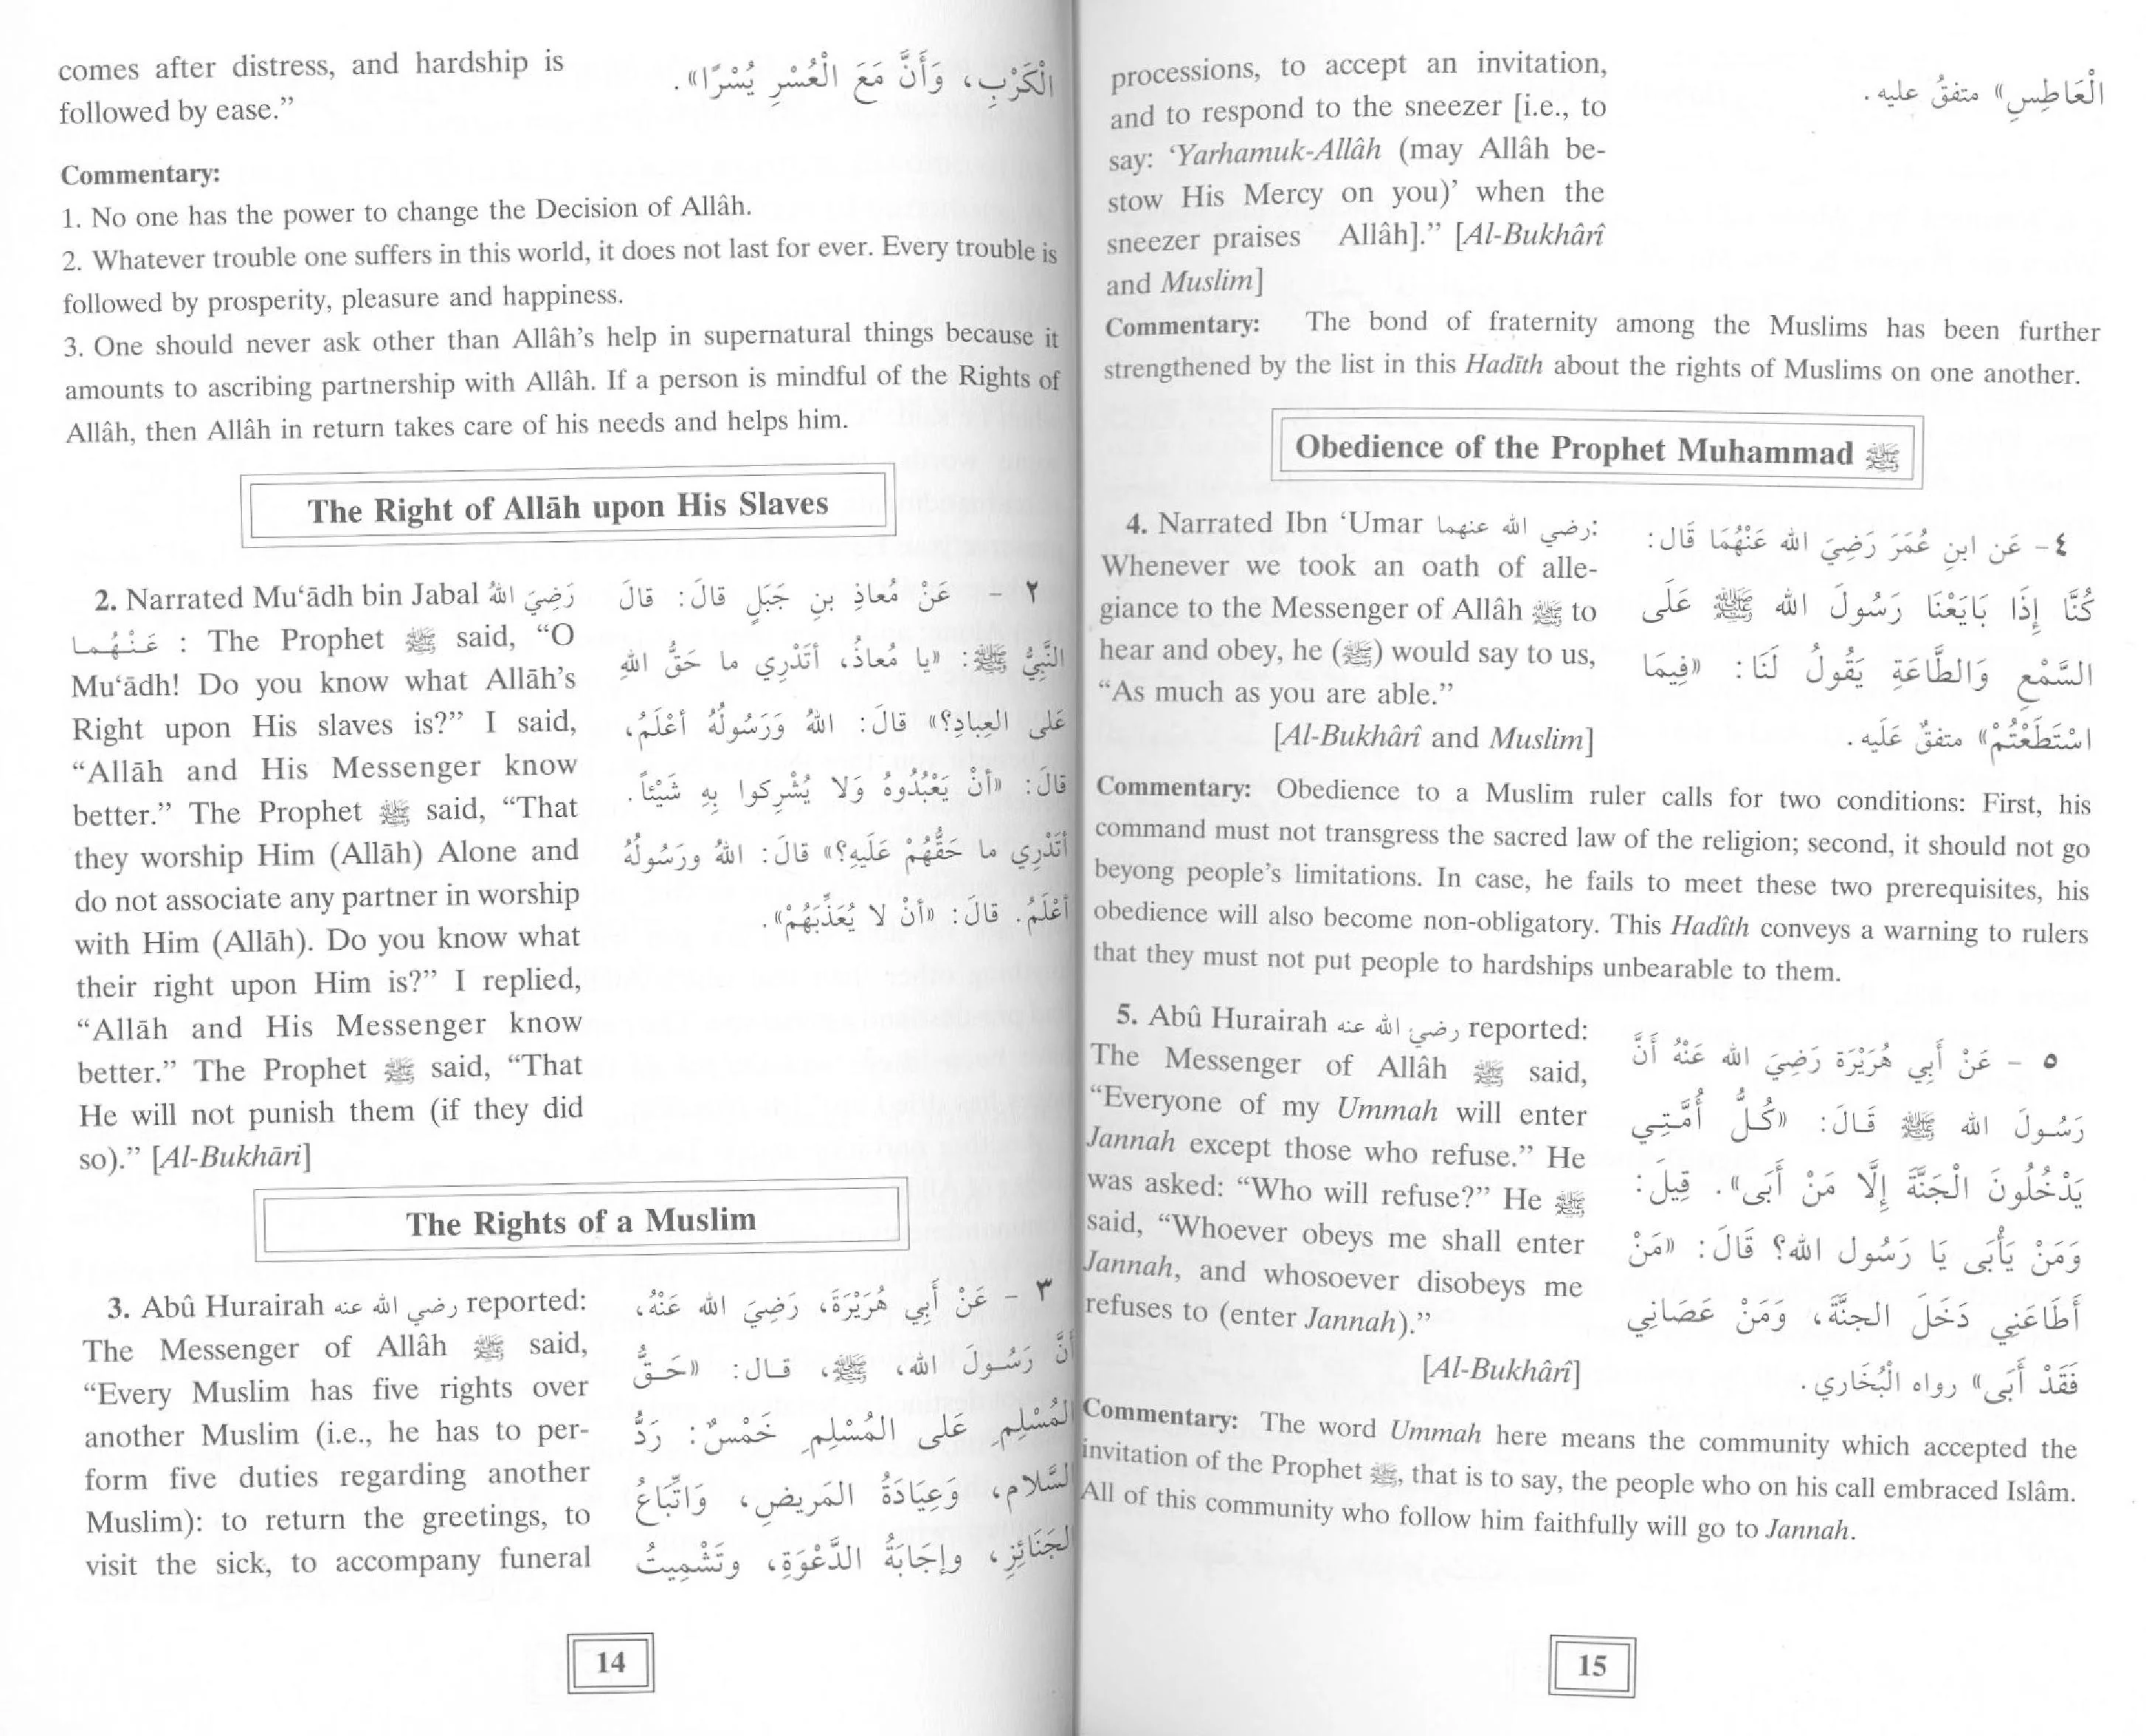 comes after distress, and hardship is
followed by ease.”
الْكَرْبِ، وَأَنَّ مَعَ الْعُسْرِ يُسْرًا».
Commentary:
1. No one has the power to change the Decision of Allâh.
2. Whatever trouble one suffers in this world, it does not last for ever. Every trouble is
followed by prosperity, pleasure and happiness.
3. One should never ask other than Allâh’s help in supernatural things because it
amounts to ascribing partnership with Allâh. If a person is mindful of the Rights of
Allâh, then Allâh in return takes care of his needs and helps him.
The Right of Allāh upon His Slaves
2. Narrated Mu‘ādh bin Jabal رَضِيَ اللهُ
عَنْهُما : The Prophet ﷺ said, “O
Mu‘ādh! Do you know what Allāh’s
Right upon His slaves is?” I said,
“Allāh and His Messenger know
better.” The Prophet ﷺ said, “That
they worship Him (Allāh) Alone and
do not associate any partner in worship
with Him (Allāh). Do you know what
their right upon Him is?” I replied,
“Allāh and His Messenger know
better.” The Prophet ﷺ said, “That
He will not punish them (if they did
so).” [Al-Bukhāri]
٢ - عَنْ مُعاذِ بنِ جَبَلٍ قالَ: قالَ
النَّبِيُّ ﷺ: «يا مُعاذُ، أتَدْرِي ما حَقُّ اللهِ
عَلى العِبادِ؟» قالَ: اللهُ وَرَسُولُهُ أعْلَمُ،
قالَ: «أنْ يَعْبُدُوهُ وَلا يُشْرِكوا بِهِ شَيْئاً.
أتَدْرِي ما حَقُّهُمْ عَلَيهِ؟» قالَ: اللهُ ورَسُولُهُ
أعْلَمُ. قالَ: «أنْ لا يُعَذِّبَهُمْ».
The Rights of a Muslim
3. Abû Hurairah رضي الله عنه reported:
The Messenger of Allâh ﷺ said,
“Every Muslim has five rights over
another Muslim (i.e., he has to per-
form five duties regarding another
Muslim): to return the greetings, to
visit the sick, to accompany funeral
٣ - عَنْ أَبِي هُرَيْرَةَ، رَضِيَ الله عَنْهُ،
أَنَّ رَسُولَ الله، ﷺ، قال: «حَقُّ
المُسْلِمِ عَلى المُسْلِمِ خَمْسٌ: رَدُّ
السَّلام، وَعِيَادَةُ المَريضِ، وَاتِّبَاعُ
الجَنَائِزِ، وإجَابَةُ الدَّعْوَةِ، وتَشْمِيتُ
14
processions, to accept an invitation,
and to respond to the sneezer [i.e., to
say: ‘Yarhamuk-Allâh (may Allâh be-
stow His Mercy on you)’ when the
sneezer praises Allâh].” [Al-Bukhârî
and Muslim]
الْعَاطِسِ» متفقٌ عليه.
Commentary: The bond of fraternity among the Muslims has been further
strengthened by the list in this Hadīth about the rights of Muslims on one another.
Obedience of the Prophet Muhammad ﷺ
4. Narrated Ibn ‘Umar رضي الله عنهما:
Whenever we took an oath of alle-
giance to the Messenger of Allâh ﷺ to
hear and obey, he (ﷺ) would say to us,
“As much as you are able.”
[Al-Bukhârî and Muslim]
٤ - عَن ابنِ عُمَرَ رَضِيَ الله عَنْهُمَا قَال:
كُنَّا إِذَا بَايَعْنَا رَسُولَ الله ﷺ عَلَى
السَّمْعِ وَالطَّاعَةِ يَقُولُ لَنَا: «فِيمَا
اسْتَطَعْتُمْ» متفقٌ عَلَيه.
Commentary: Obedience to a Muslim ruler calls for two conditions: First, his
command must not transgress the sacred law of the religion; second, it should not go
beyong people’s limitations. In case, he fails to meet these two prerequisites, his
obedience will also become non-obligatory. This Hadîth conveys a warning to rulers
that they must not put people to hardships unbearable to them.
5. Abû Hurairah رضي الله عنه reported:
The Messenger of Allâh ﷺ said,
“Everyone of my Ummah will enter
Jannah except those who refuse.” He
was asked: “Who will refuse?” He ﷺ
said, “Whoever obeys me shall enter
Jannah, and whosoever disobeys me
refuses to (enter Jannah).”
[Al-Bukhârî]
٥ - عَنْ أَبِي هُرَيْرَة رَضِيَ الله عَنْهُ أَنَّ
رَسُولَ الله ﷺ قَالَ: «كُلُّ أُمَّتِي
يَدْخُلُونَ الْجَنَّةَ إِلَّا مَنْ أَبَى». قِيلَ:
وَمَنْ يَأْبَى يَا رَسُول الله؟ قَالَ: «مَنْ
أَطَاعَنِي دَخَلَ الجنَّةَ، وَمَنْ عَصَانِي
فَقَدْ أَبَى» رواه الْبُخَاري.
Commentary: The word Ummah here means the community which accepted the
invitation of the Prophet ﷺ, that is to say, the people who on his call embraced Islâm.
All of this community who follow him faithfully will go to Jannah.
15